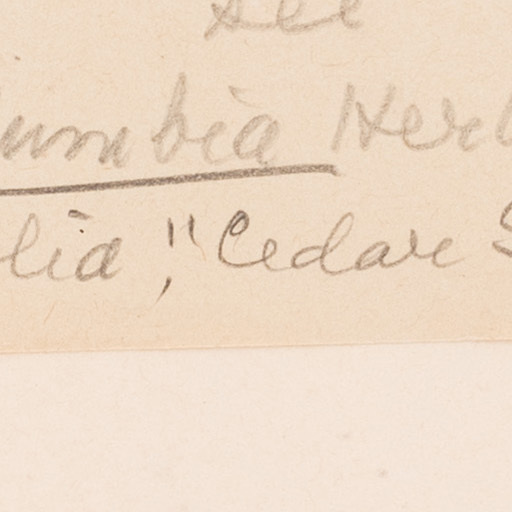 see
umbia Her
lia," Cedar S